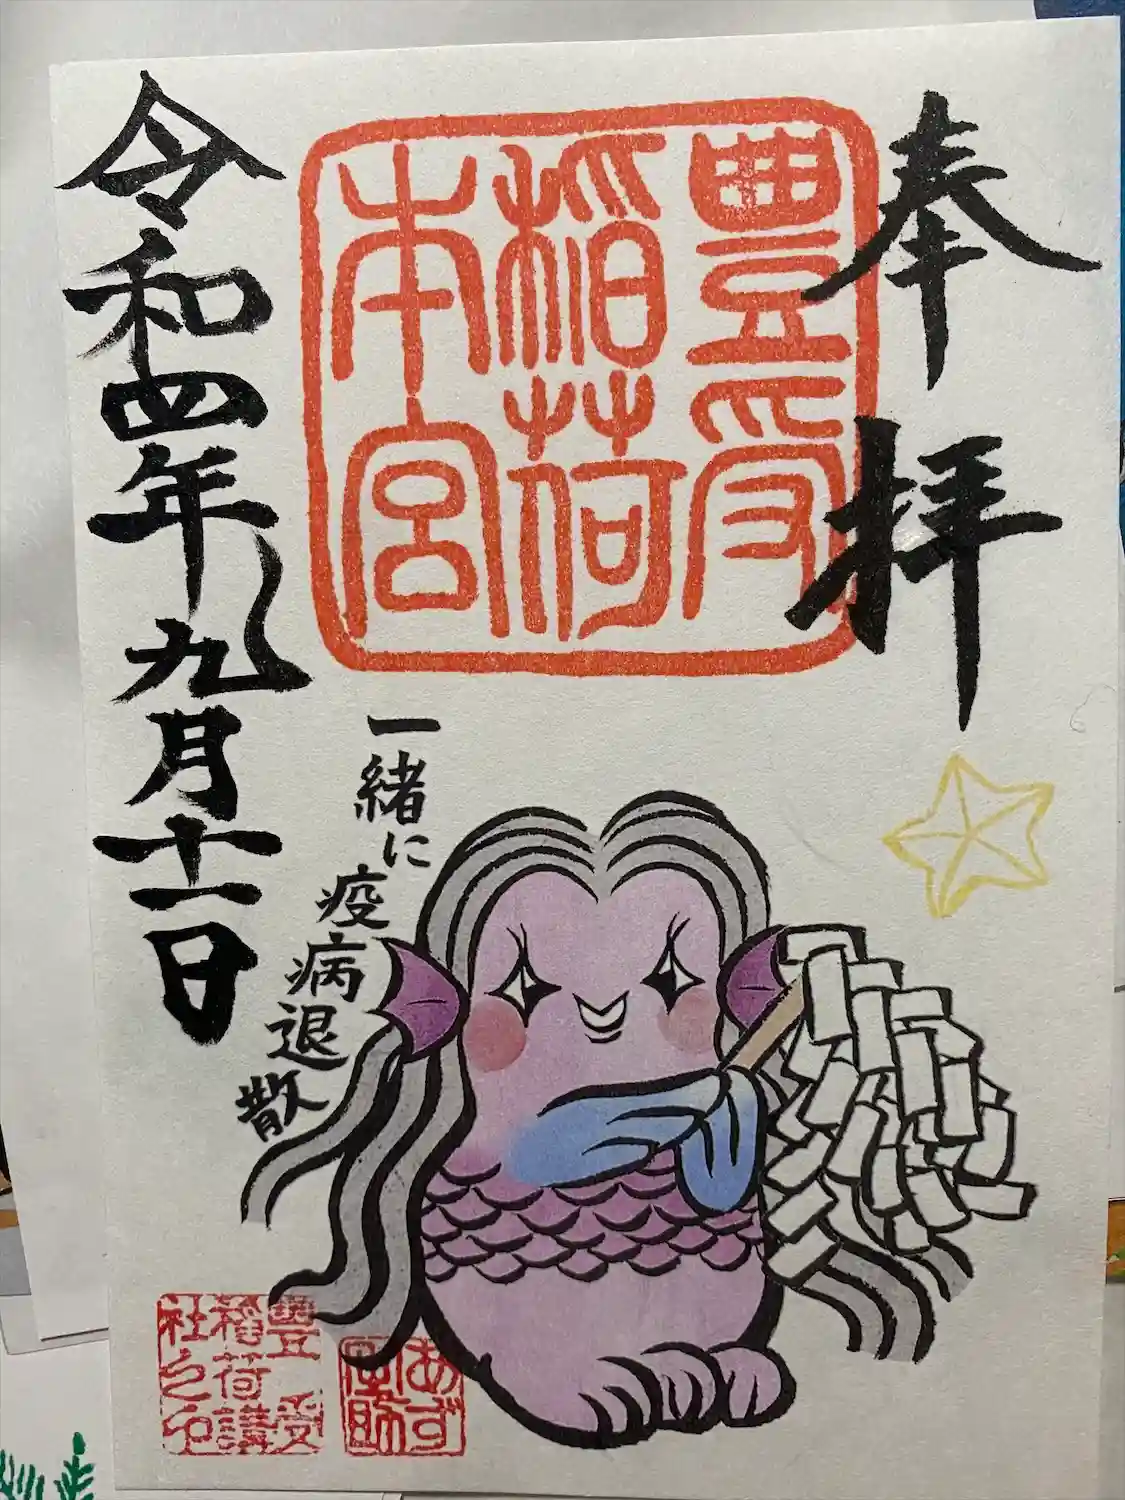 奉拝
豊受
稲荷
本宮
令和四年九月十一日
一緒に
疫病退散
豊受
稲荷講
社之印
あず